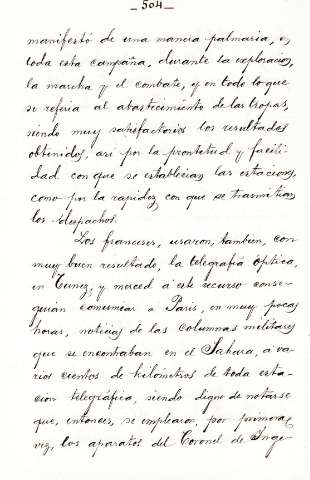 — 504 —
manifestó de una manera palmaria, en
toda esta campaña, durante la exploracion,
la marcha y el combate, y en todo lo que
se referia al abastecimiento de las tropas,
siendo muy satisfactorios los resultados
obtenidos, asi por la prontitud y facili-
dad con que se establecian las estaciones,
como por la rapidez con que se trasmitian
los despachos.
Los franceses, usaron, tambien, con
muy buen resultado, la telegrafia óptica,
en Tunez, y merced á este recurso conse-
guian comunicar á Paris, en muy pocas
horas, noticias de las columnas militares
que se encontraban en el Sahara, á va-
rios cientos de kilómetros de toda esta-
cion telegráfica, siendo digno de notarse
que, entonces, se emplearon, por primera
vez, los aparatos del Coronel de Inge-